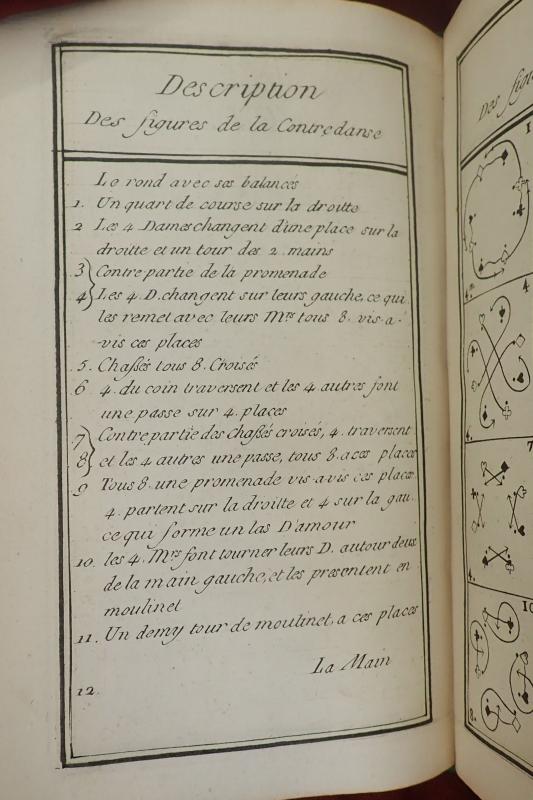 Description
Des figures de la Contredanse
Le rond avec ses balancés
1. Un quart de course sur la droitte
2 Les 4 Dames changent d'une place sur la
droitte et un tour des 2 mains
3 Contre partie de la promenade
4 Les 4 D. changent sur leurs gauche, ce qui
les remet avec leurs Mrs tous 8. vis-a-
vis ces places
5. Chassés tous 8. Croisés
6 4. du coin traversent et les 4 autres font
une passe sur 4. places
7 Contre partie des chassés croisés, 4. traversent
8 et les 4 autres une passe, tous 8. a ces places
9 Tous 8. une promenade vis-avis ces places
4. partent sur la droitte et 4 sur la gau.
ce qui forme un las D'amour
10. les 4. Mrs font tourner leurs D. autour deux
de la main gauche, et les presentent en
moulinet
11. Un demy tour de moulinet, a ces places
La Main
12.
Des figu
1
4
7
10